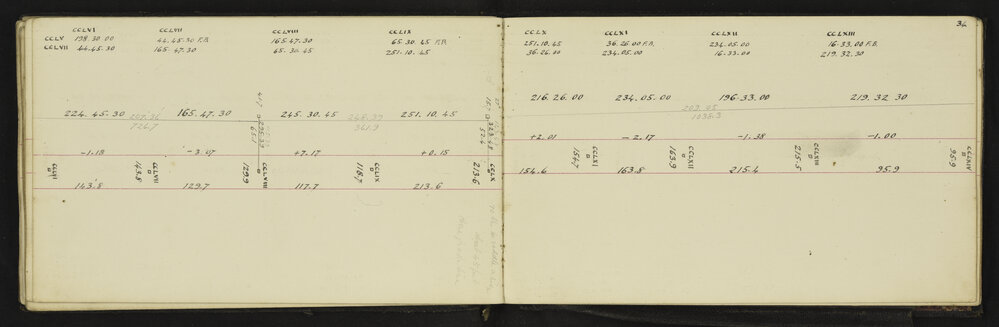 CCLVI CCLVII CCLVIII CCLIX
CCLV 198.30.00 44.45.30 F.B. 165.47.30 65.30.45 F.B.
CCLVII 44.45.30 165.47.30 65.30.45 251.10.45
224.45.30 165.47.30 245.30.45 251.10.45
726.7 245.39
361.9
-1.18 -3.07 +7.17 +0.15
CCLVII
143.8
CCLVIII
129.9
CCLIX
118.7
CCLX
213.6
143.8 129.7 117.7 213.6
36
CCLX CCLXI CCLXII CCLXIII
251.10.45 36.26.00 F.B. 234.05.00 16.33.00 F.B.
36.26.00 234.05.00 16.33.00 219.32.30
216.26.00 234.05.00 196.33.00 219.32.30
209.05
1035.3
+2.01 -2.17 -1.38 -1.00
CCLXI
154.7
CCLXII
163.9
CCLXIII
215.5
CCLXIV
95.9
154.6 163.8 215.4 95.9